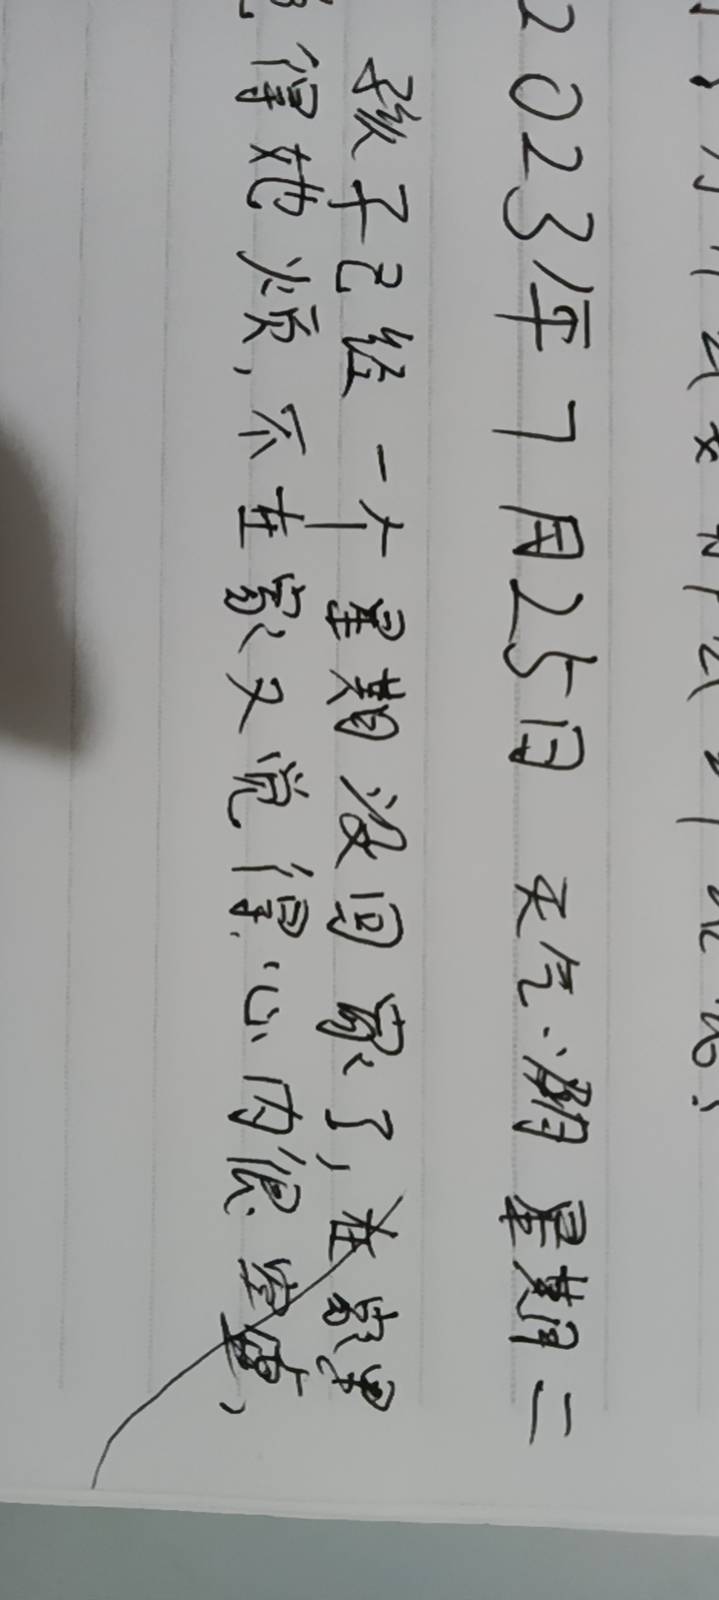 2023年7月25日 天气:阴 星期二
孩子已经一个星期没回家了,在家里
觉得她烦,不在家又觉得心内很空虚,